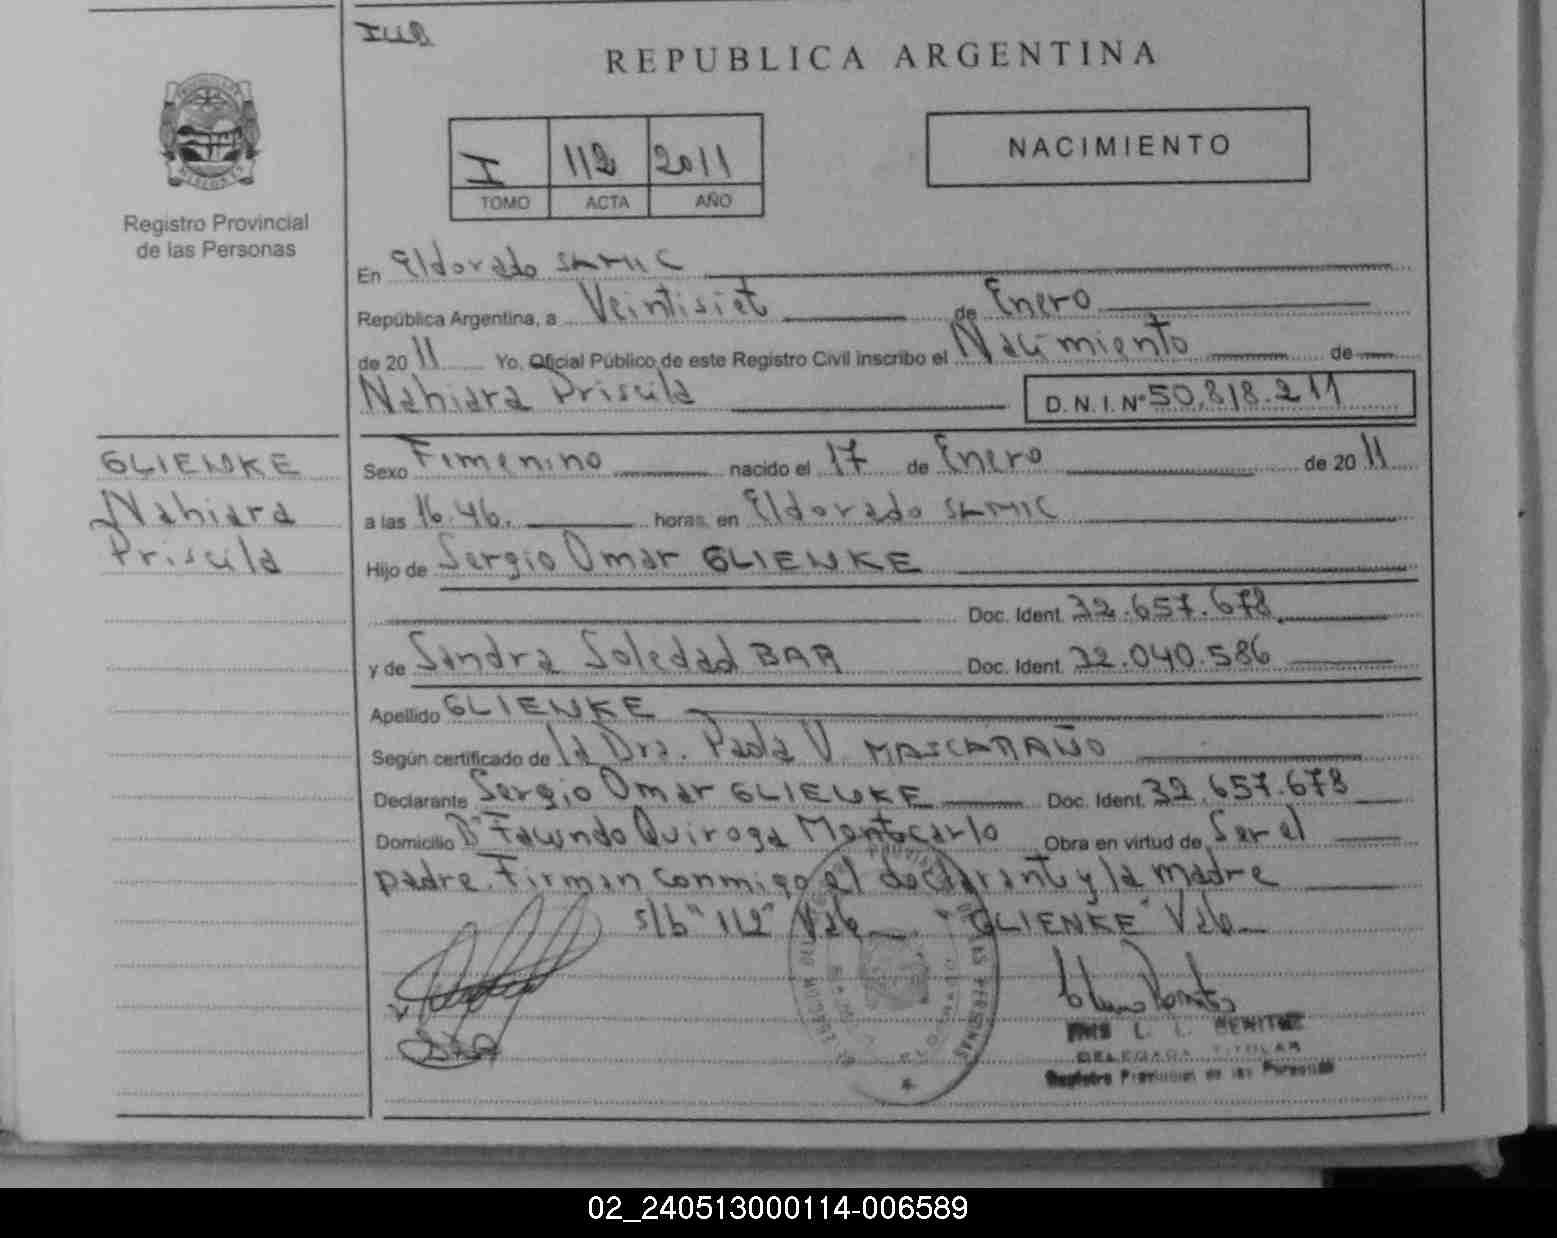 REPUBLICA ARGENTINA
I 112 2011
TOMO ACTA AÑO
NACIMIENTO
MISIONES
Registro Provincial
de las Personas
En Eldorado SAMIC
República Argentina, a Veintisiet de Enero
de 2011 Yo, Oficial Público de este Registro Civil inscribo el Nacimiento de
Nahiara Priscila D.N.I. Nº 50.818.211
GLIENKE
Nahiara
Priscila
Sexo Femenino nacido el 17 de Enero de 2011
a las 16.46. horas, en Eldorado SAMIC
Hijo de Sergio Omar GLIENKE
Doc. Ident. 32.657.678
y de Sandra Soledad BAR Doc. Ident. 32.040.586
Apellido GLIENKE
Según certificado de la Dra. Paola V. MASCARAÑO
Declarante Sergio Omar GLIENKE Doc. Ident. 32.657.678
Domicilio Bº Facundo Quiroga Montecarlo Obra en virtud de Ser el
padre. Firman conmigo el declarante y la madre
s/b "112" Vale "GLIENKE" Vale
L. BENITEZ
DELEGADA TITULAR
Registro Provincial de las Personas
02_240513000114-006589